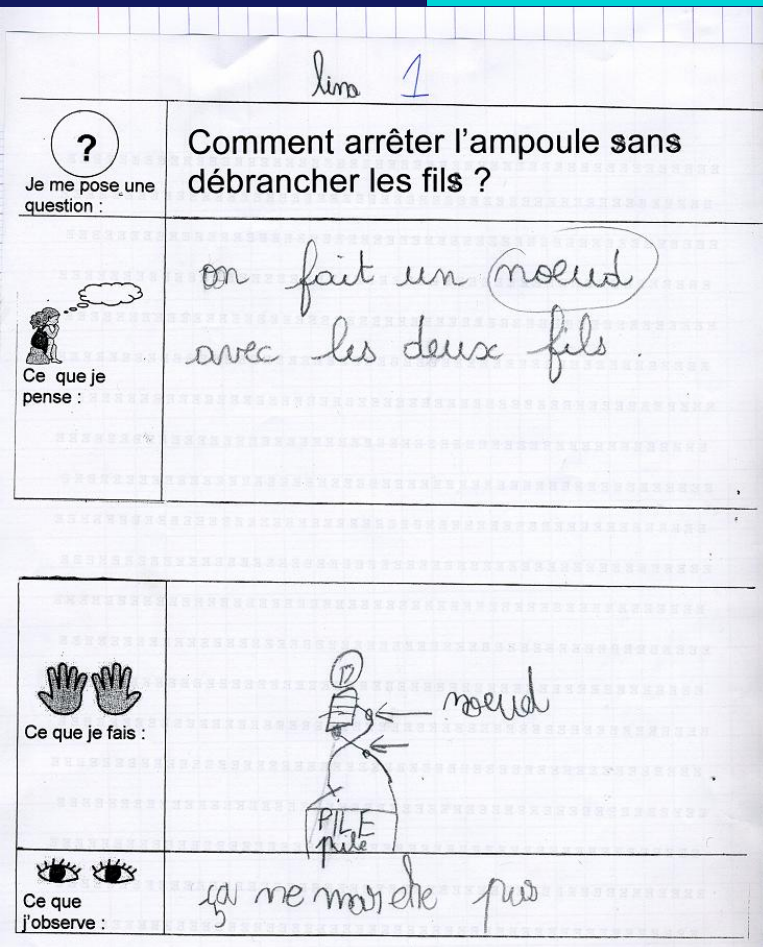 lina 1
?
Je me pose une
question :
Comment arrêter l'ampoule sans
débrancher les fils ?
Ce que je
pense :
on fait un noeud
avec les deux fils.
Ce que je fais :
noeud
PILE
pile
Ce que
j'observe :
ça ne marche pas